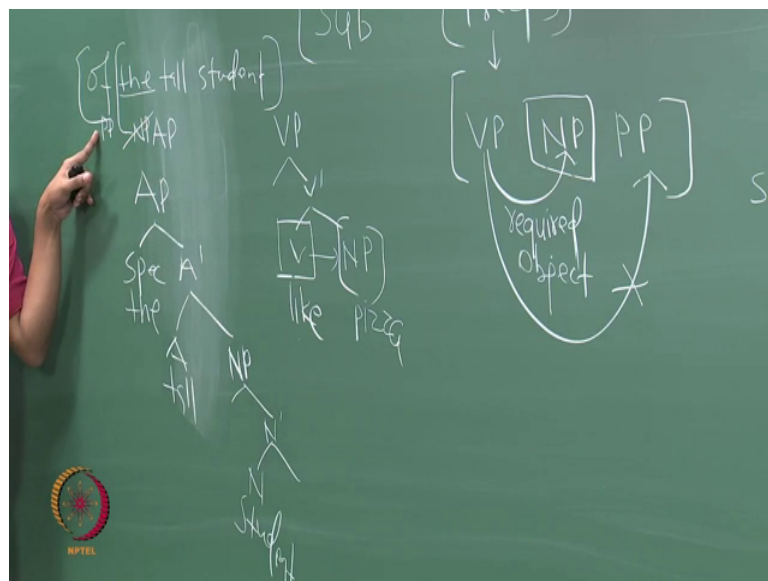 [Sub
[of [the tall student]
PP NP AP
AP
Spec A'
the
A NP
tall
N'
N
Student
VP
V'
V → NP
like pizza
[VP NP PP]
required
Object
S
NPTEL